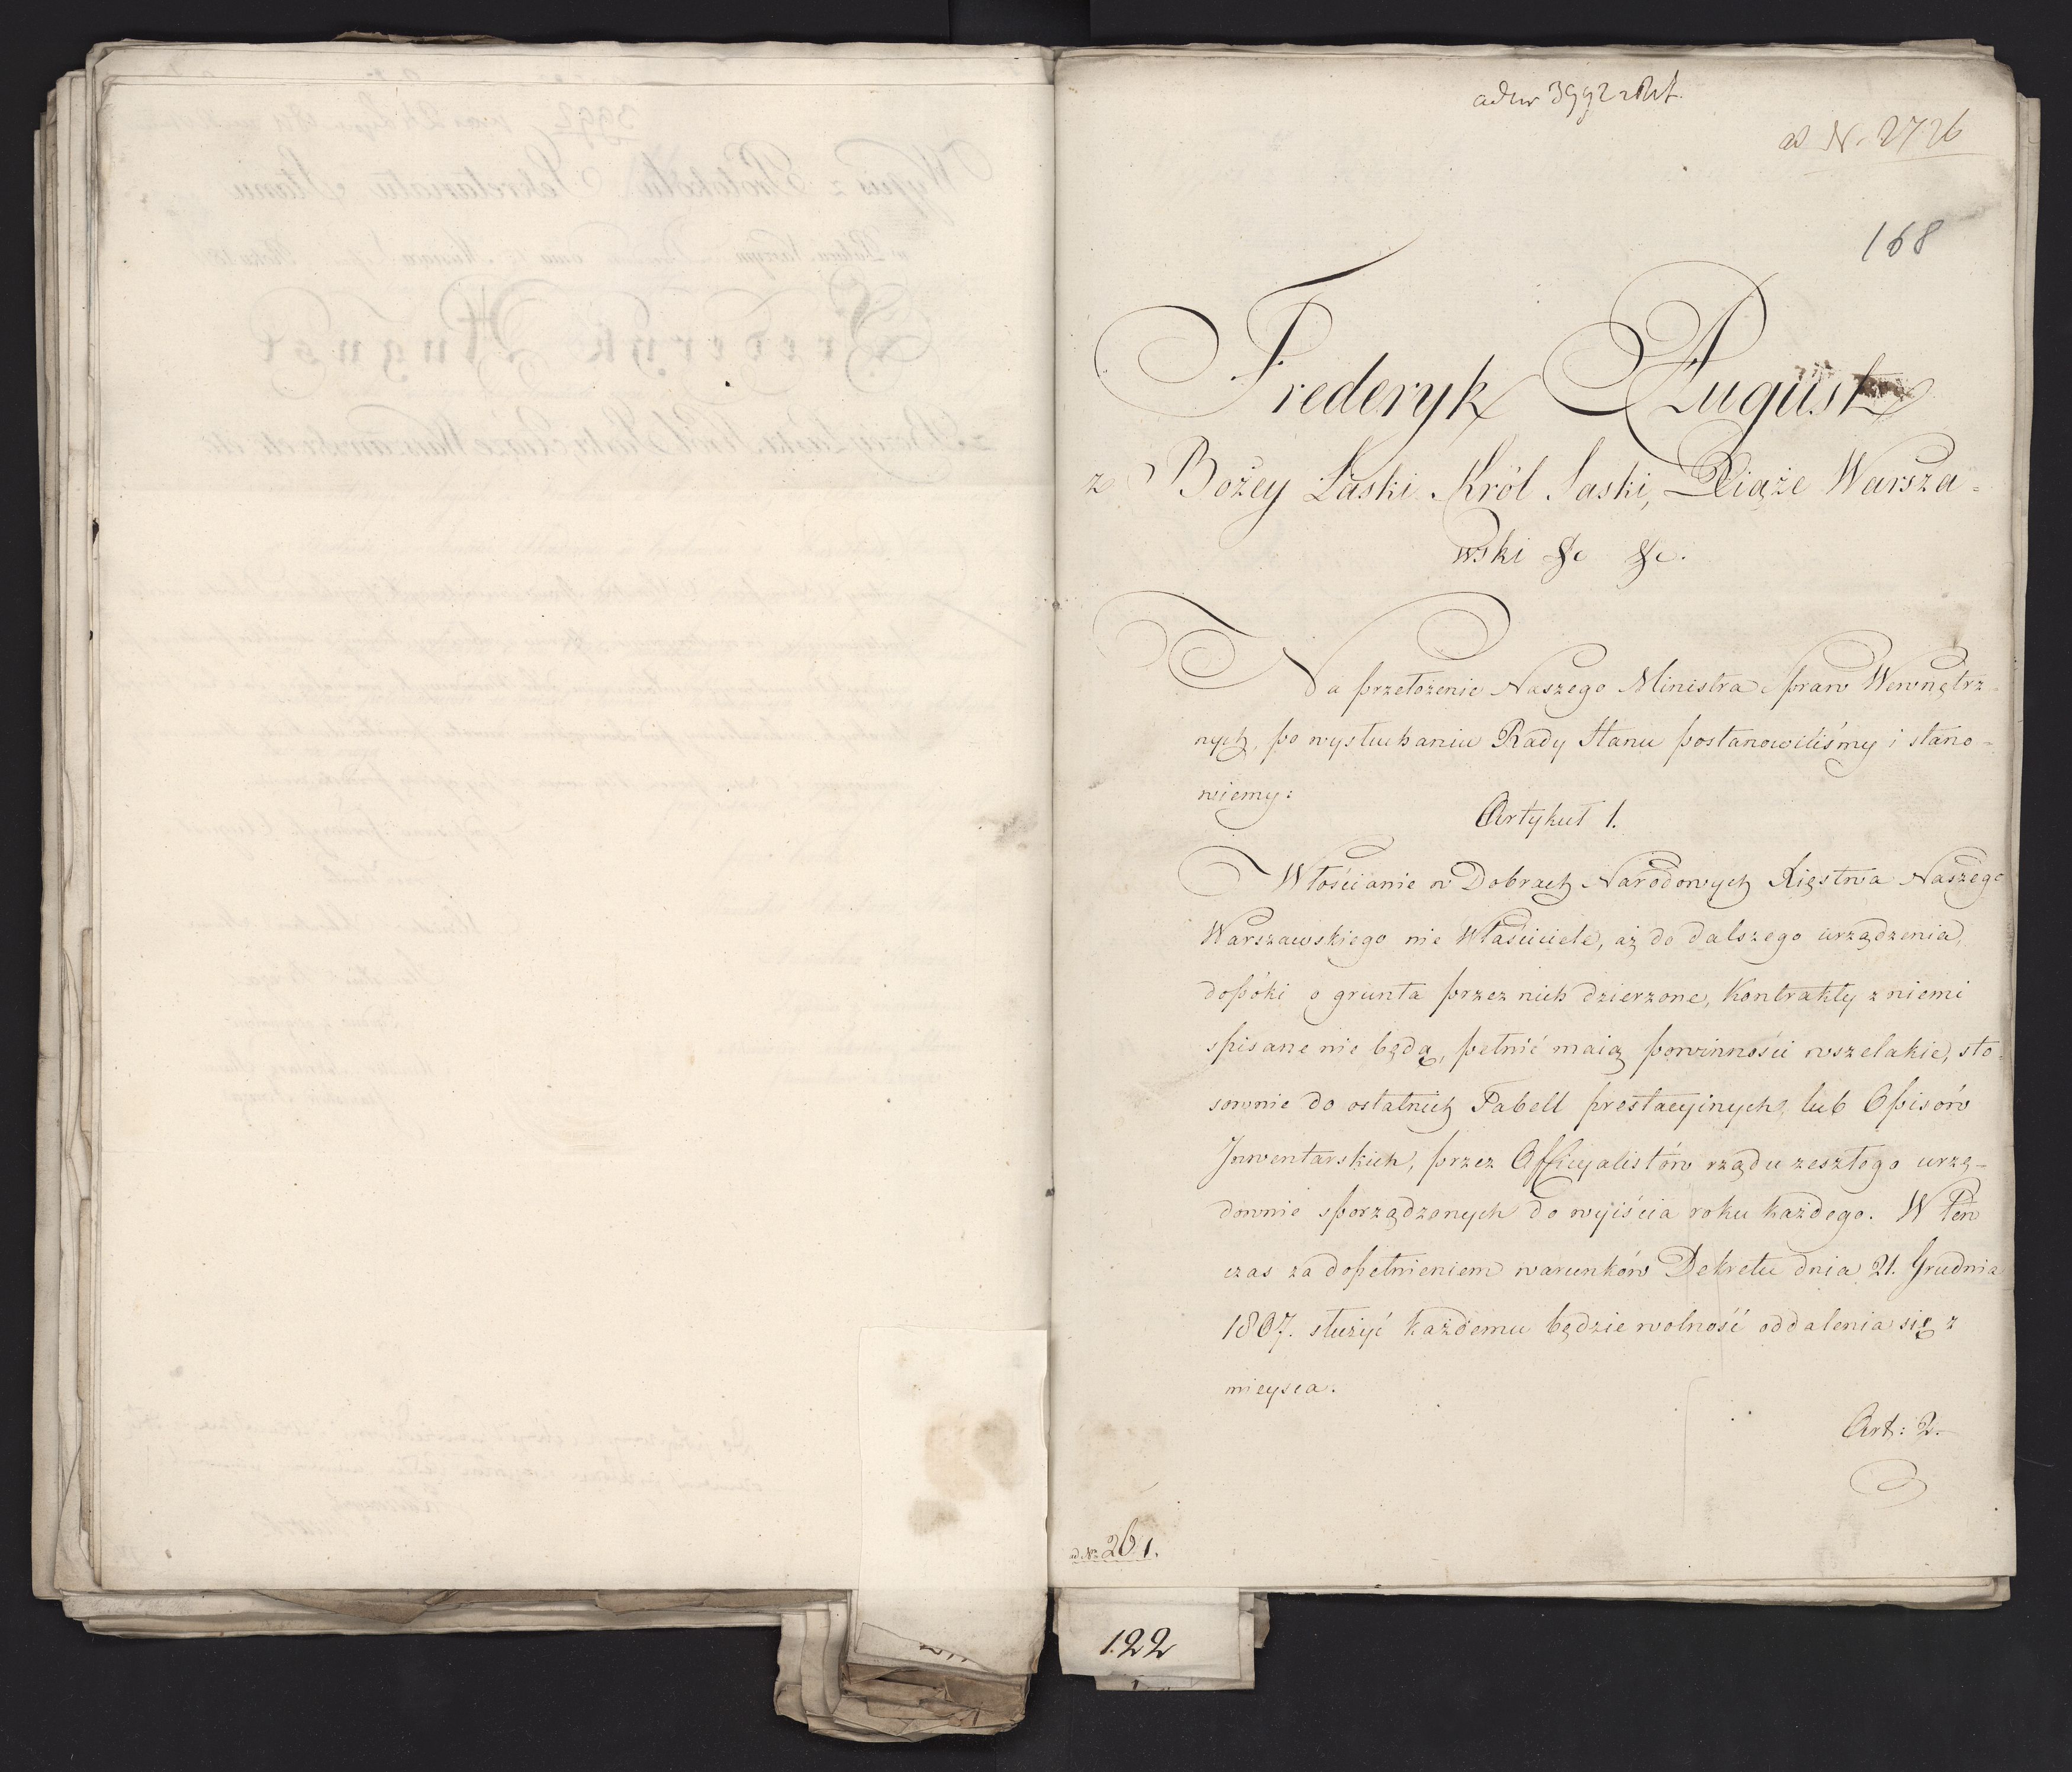 ad N. 2726
168
Frederyk August
z Bożey Łaski Król Saski, Xiąże Warsza-
wski &c &c.
Na przełożenie Naszego Ministra Spraw Wewnętrz-
nych, po wysłuchaniu Rady Stanu postanowiliśmy i stano-
wiemy:
Artykuł 1.
Włościanie w Dobrach Narodowych Xięstwa Naszego
Warszawskiego nie Właściciele, aż do dalszego urządzenia,
dopóki o grunta przez nich dzierzone, Kontrakty z niemi
spisane nie będą, pełnić maią powinności wszelakie, sto-
sownie do ostatnich Tabell prestacyinych, lub Opisów
Inwentarskich, przez Officyalistów rządu zeszłego urzę-
downie sporządzonych do wyiścia roku każdego. W ten
czas za dopełnieniem warunków Dekretu dnia 21. Grudnia
1807. służyć każdemu będzie wolność oddalenia się z
mieysca.
Art: 2.
ad Nro 261.
122